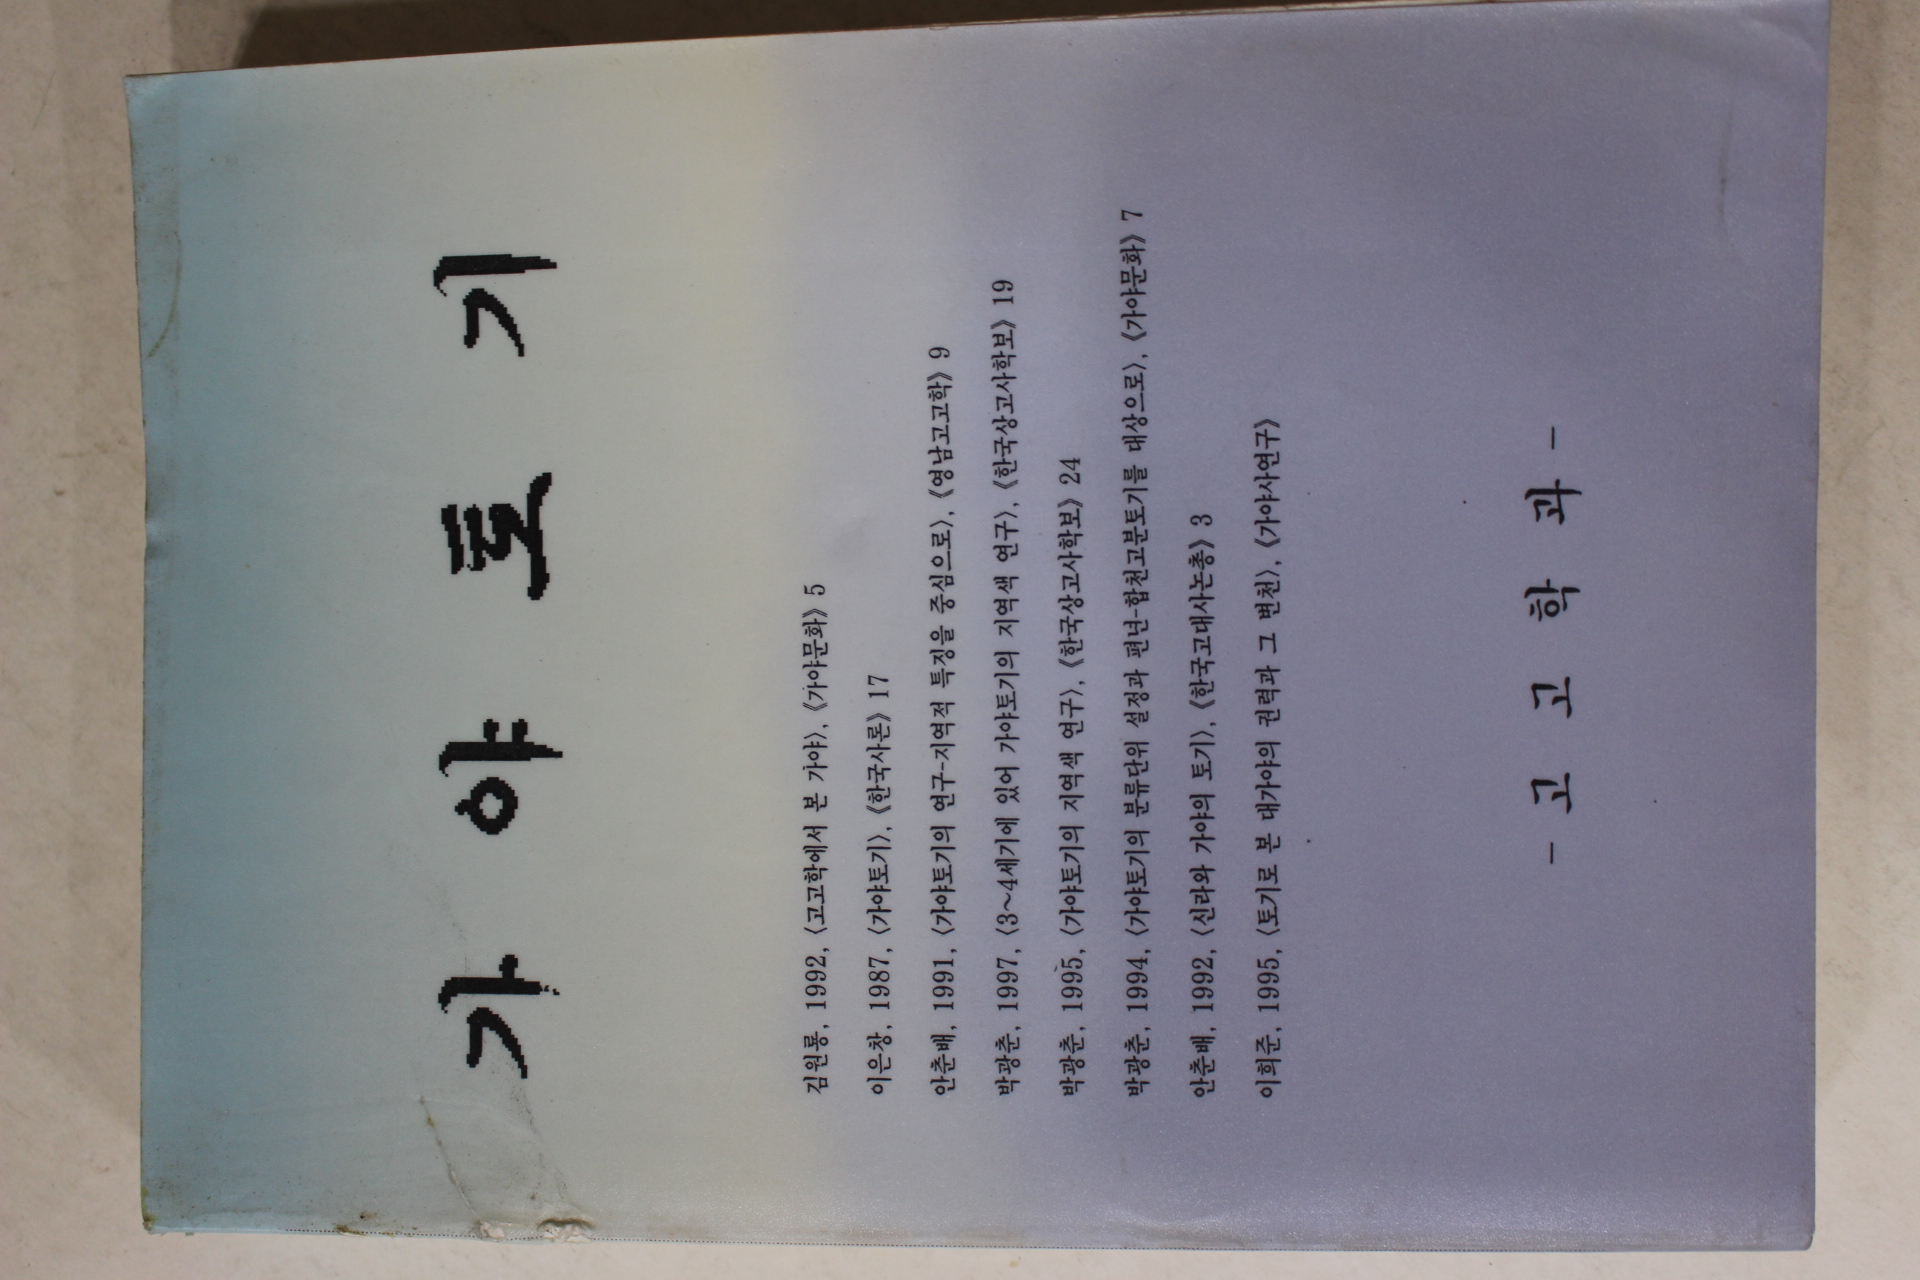 가 야 토 기
김원룡, 1992, 〈고고학에서 본 가야〉, 《가야문화》 5
이은창, 1987, 〈가야토기〉, 《한국사론》 17
안춘배, 1991, 〈가야토기의 연구-지역적 특징을 중심으로〉, 《영남고고학》 9
박광춘, 1997, 〈3~4세기에 있어 가야토기의 지역색 연구〉, 《한국상고사학보》 19
박광춘, 1995, 〈가야토기의 지역색 연구〉, 《한국상고사학보》 24
박광춘, 1994, 〈가야토기의 분류단위 설정과 편년-합천고분토기를 대상으로〉, 《가야문화》 7
안춘배, 1992, 〈신라와 가야의 토기〉, 《한국고대사논총》 3
이희준, 1995, 〈토기로 본 대가야의 권력과 그 변천〉, 《가야사연구》
- 고 고 학 과 -